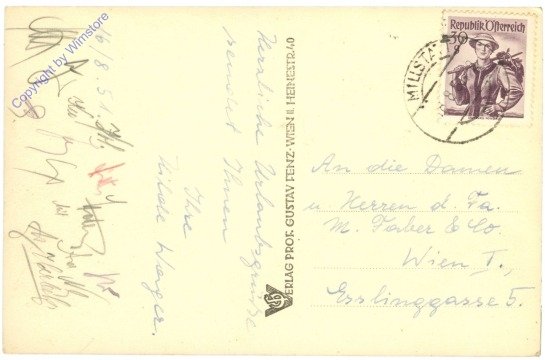 Copyright by Wimstore
16/8.51.
Herzliche Urlaubsgrüße
sendet Ihnen
Ihre
Hilde Wager.
VERLAG PROF. GUSTAV FENZ-WIEN II. HEINESTR. 40
Republik Österreich
30
g
MILLSTA
An die Damen
u Herren d. Fa.
M. Faber & Co.
Wien I.,
Esslinggasse 5.